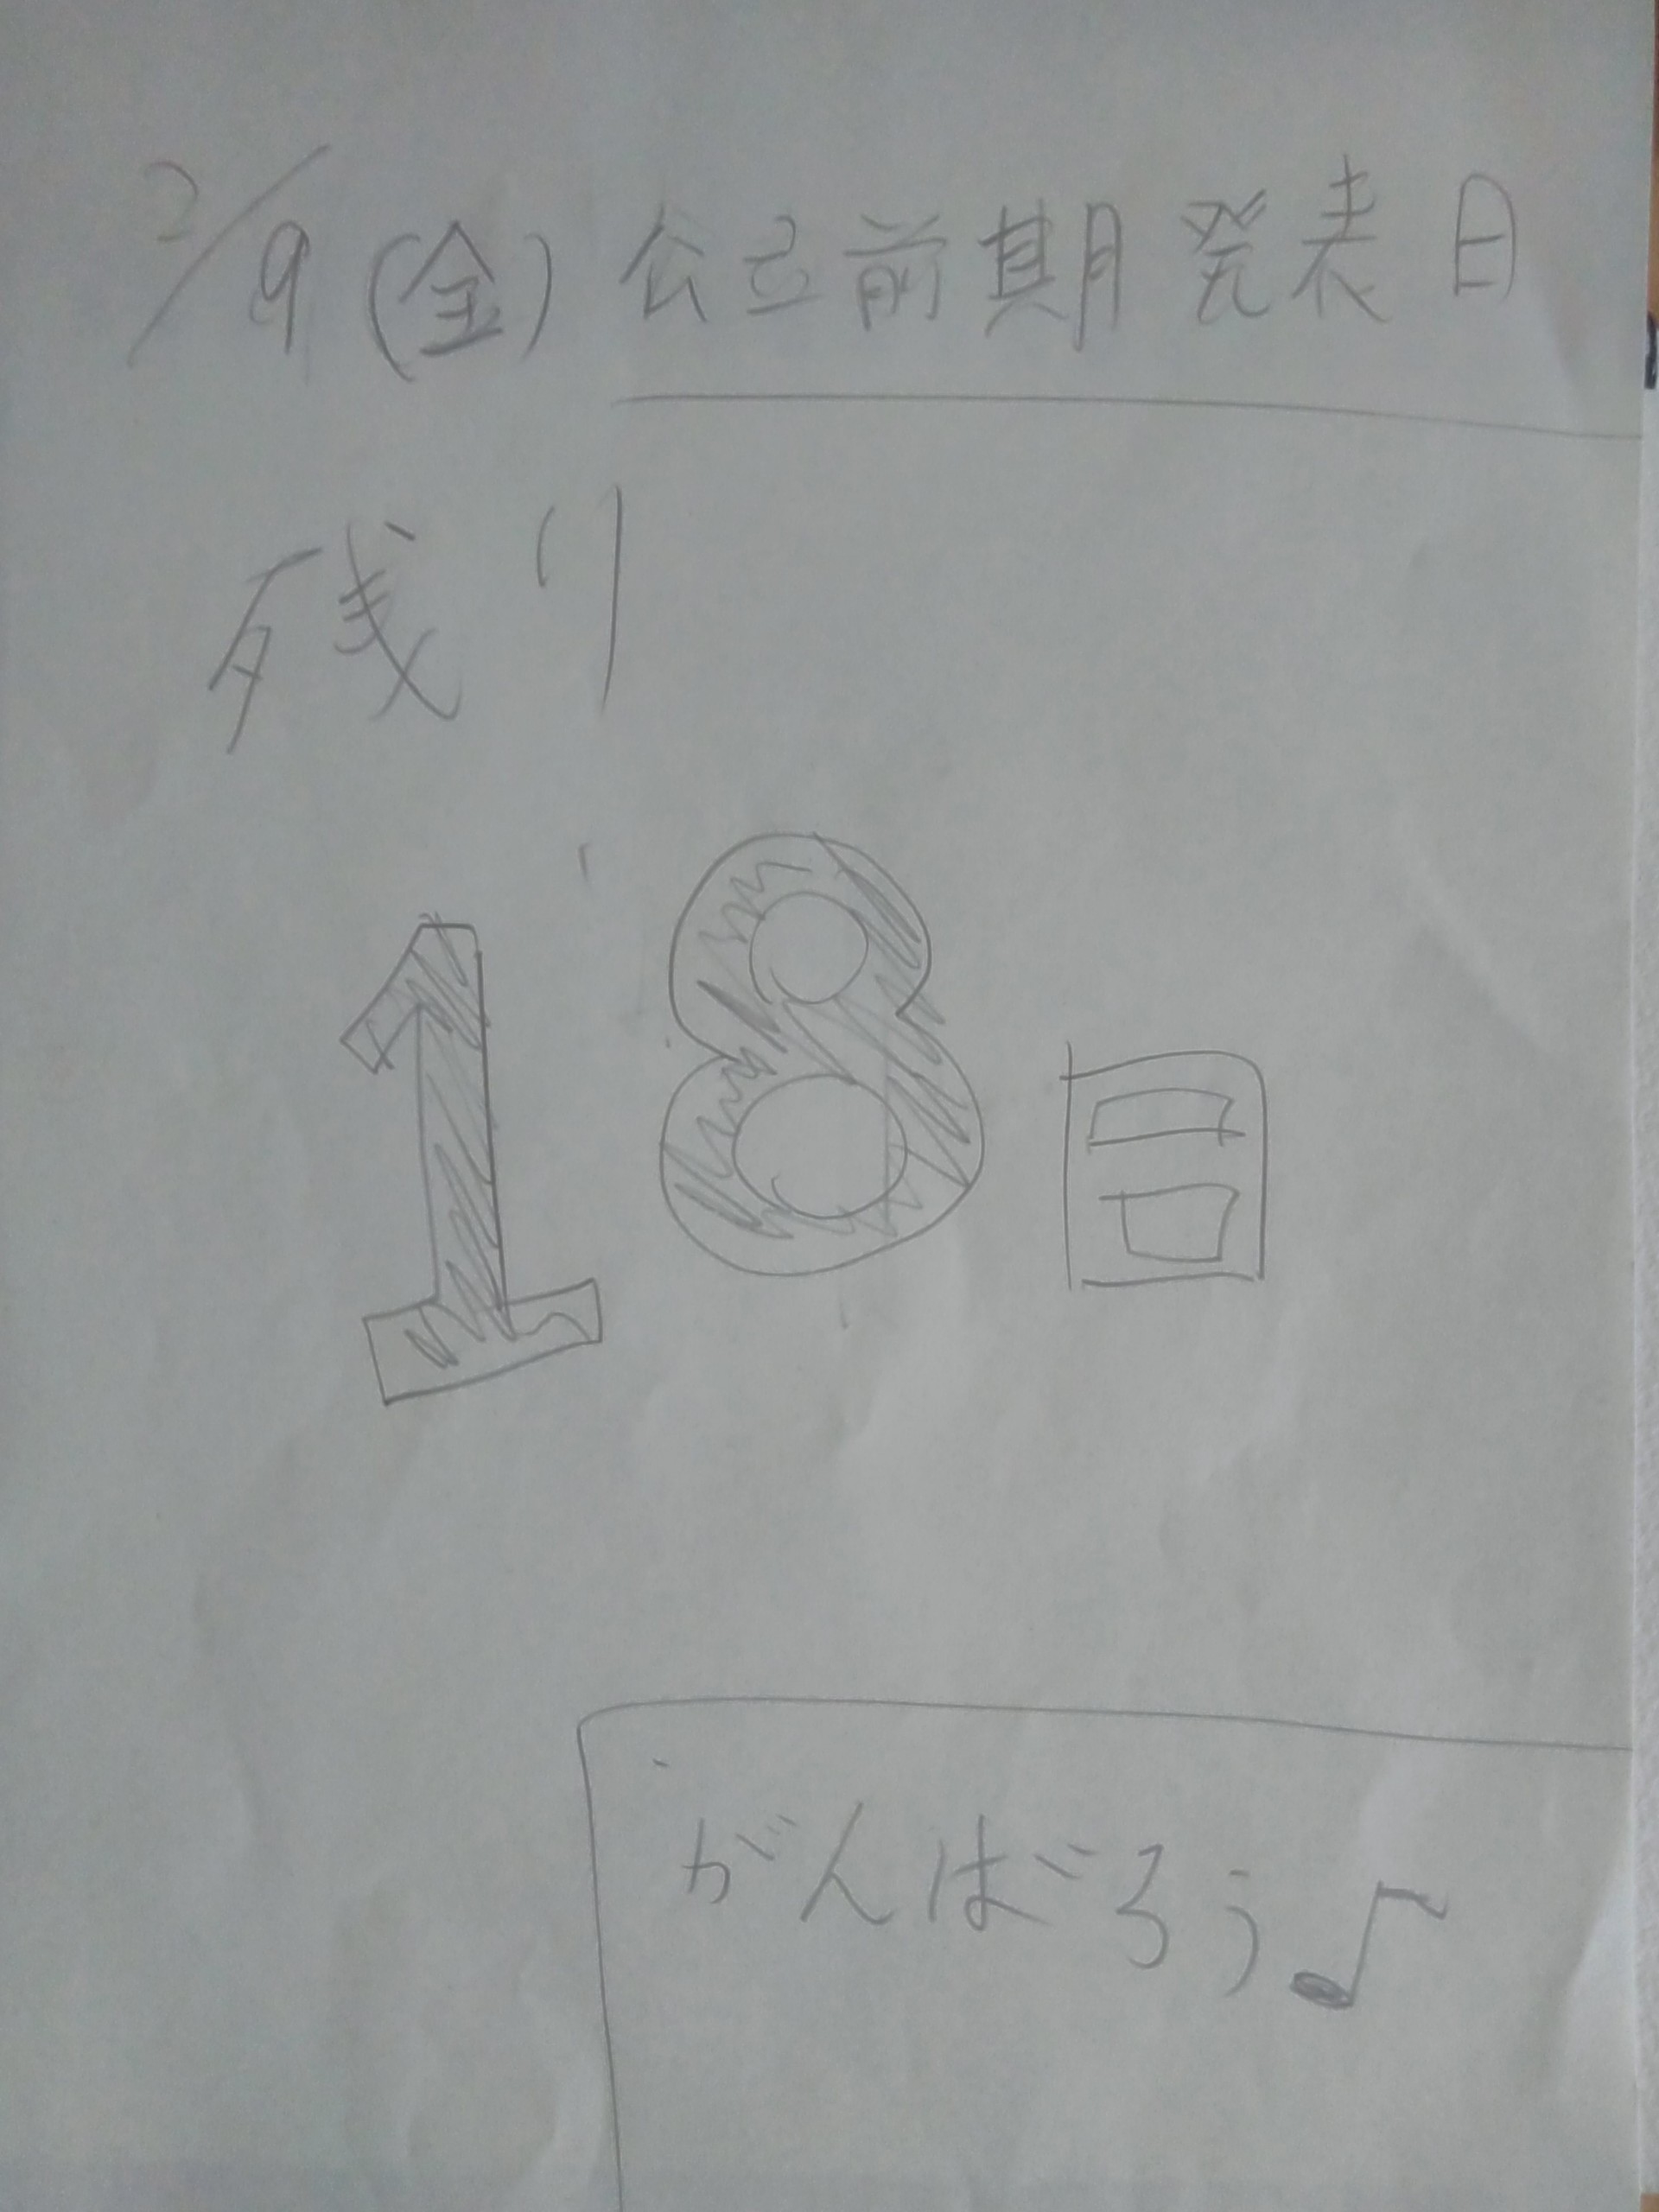 2/9(金)公立前期発表日
残り
18日
がんばろう♪